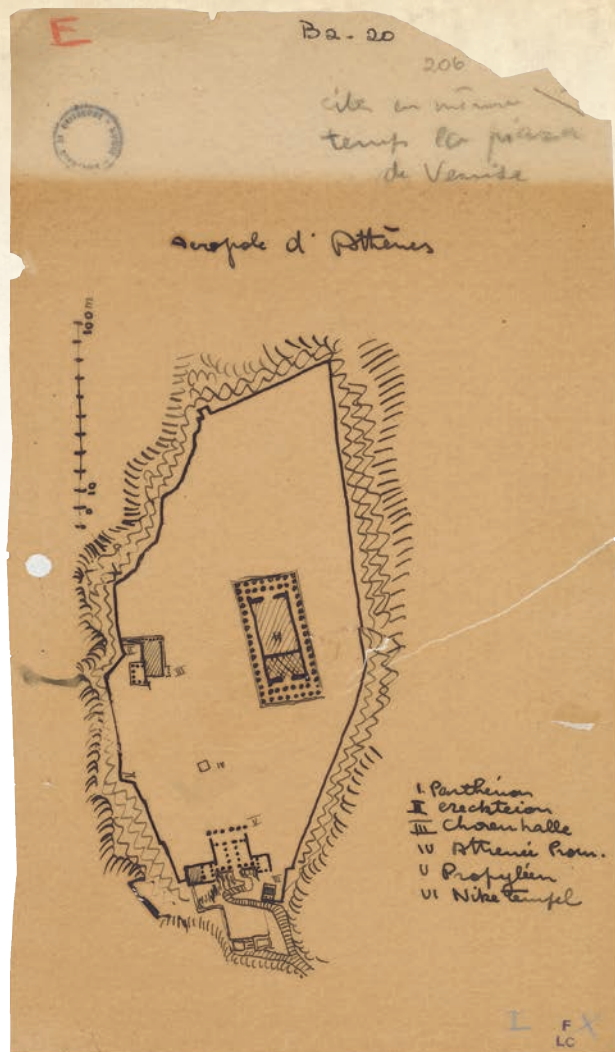 E
B2-20
206
citer en même
temps la piazza
de Venise
Acropole d'Athènes
100 m
10
0
IV
V
III
I. Parthénon
II ereckteion
III Chorenhalle
IV Athenée Prom.
V Propyléen
VI Nike tempel
F
LC